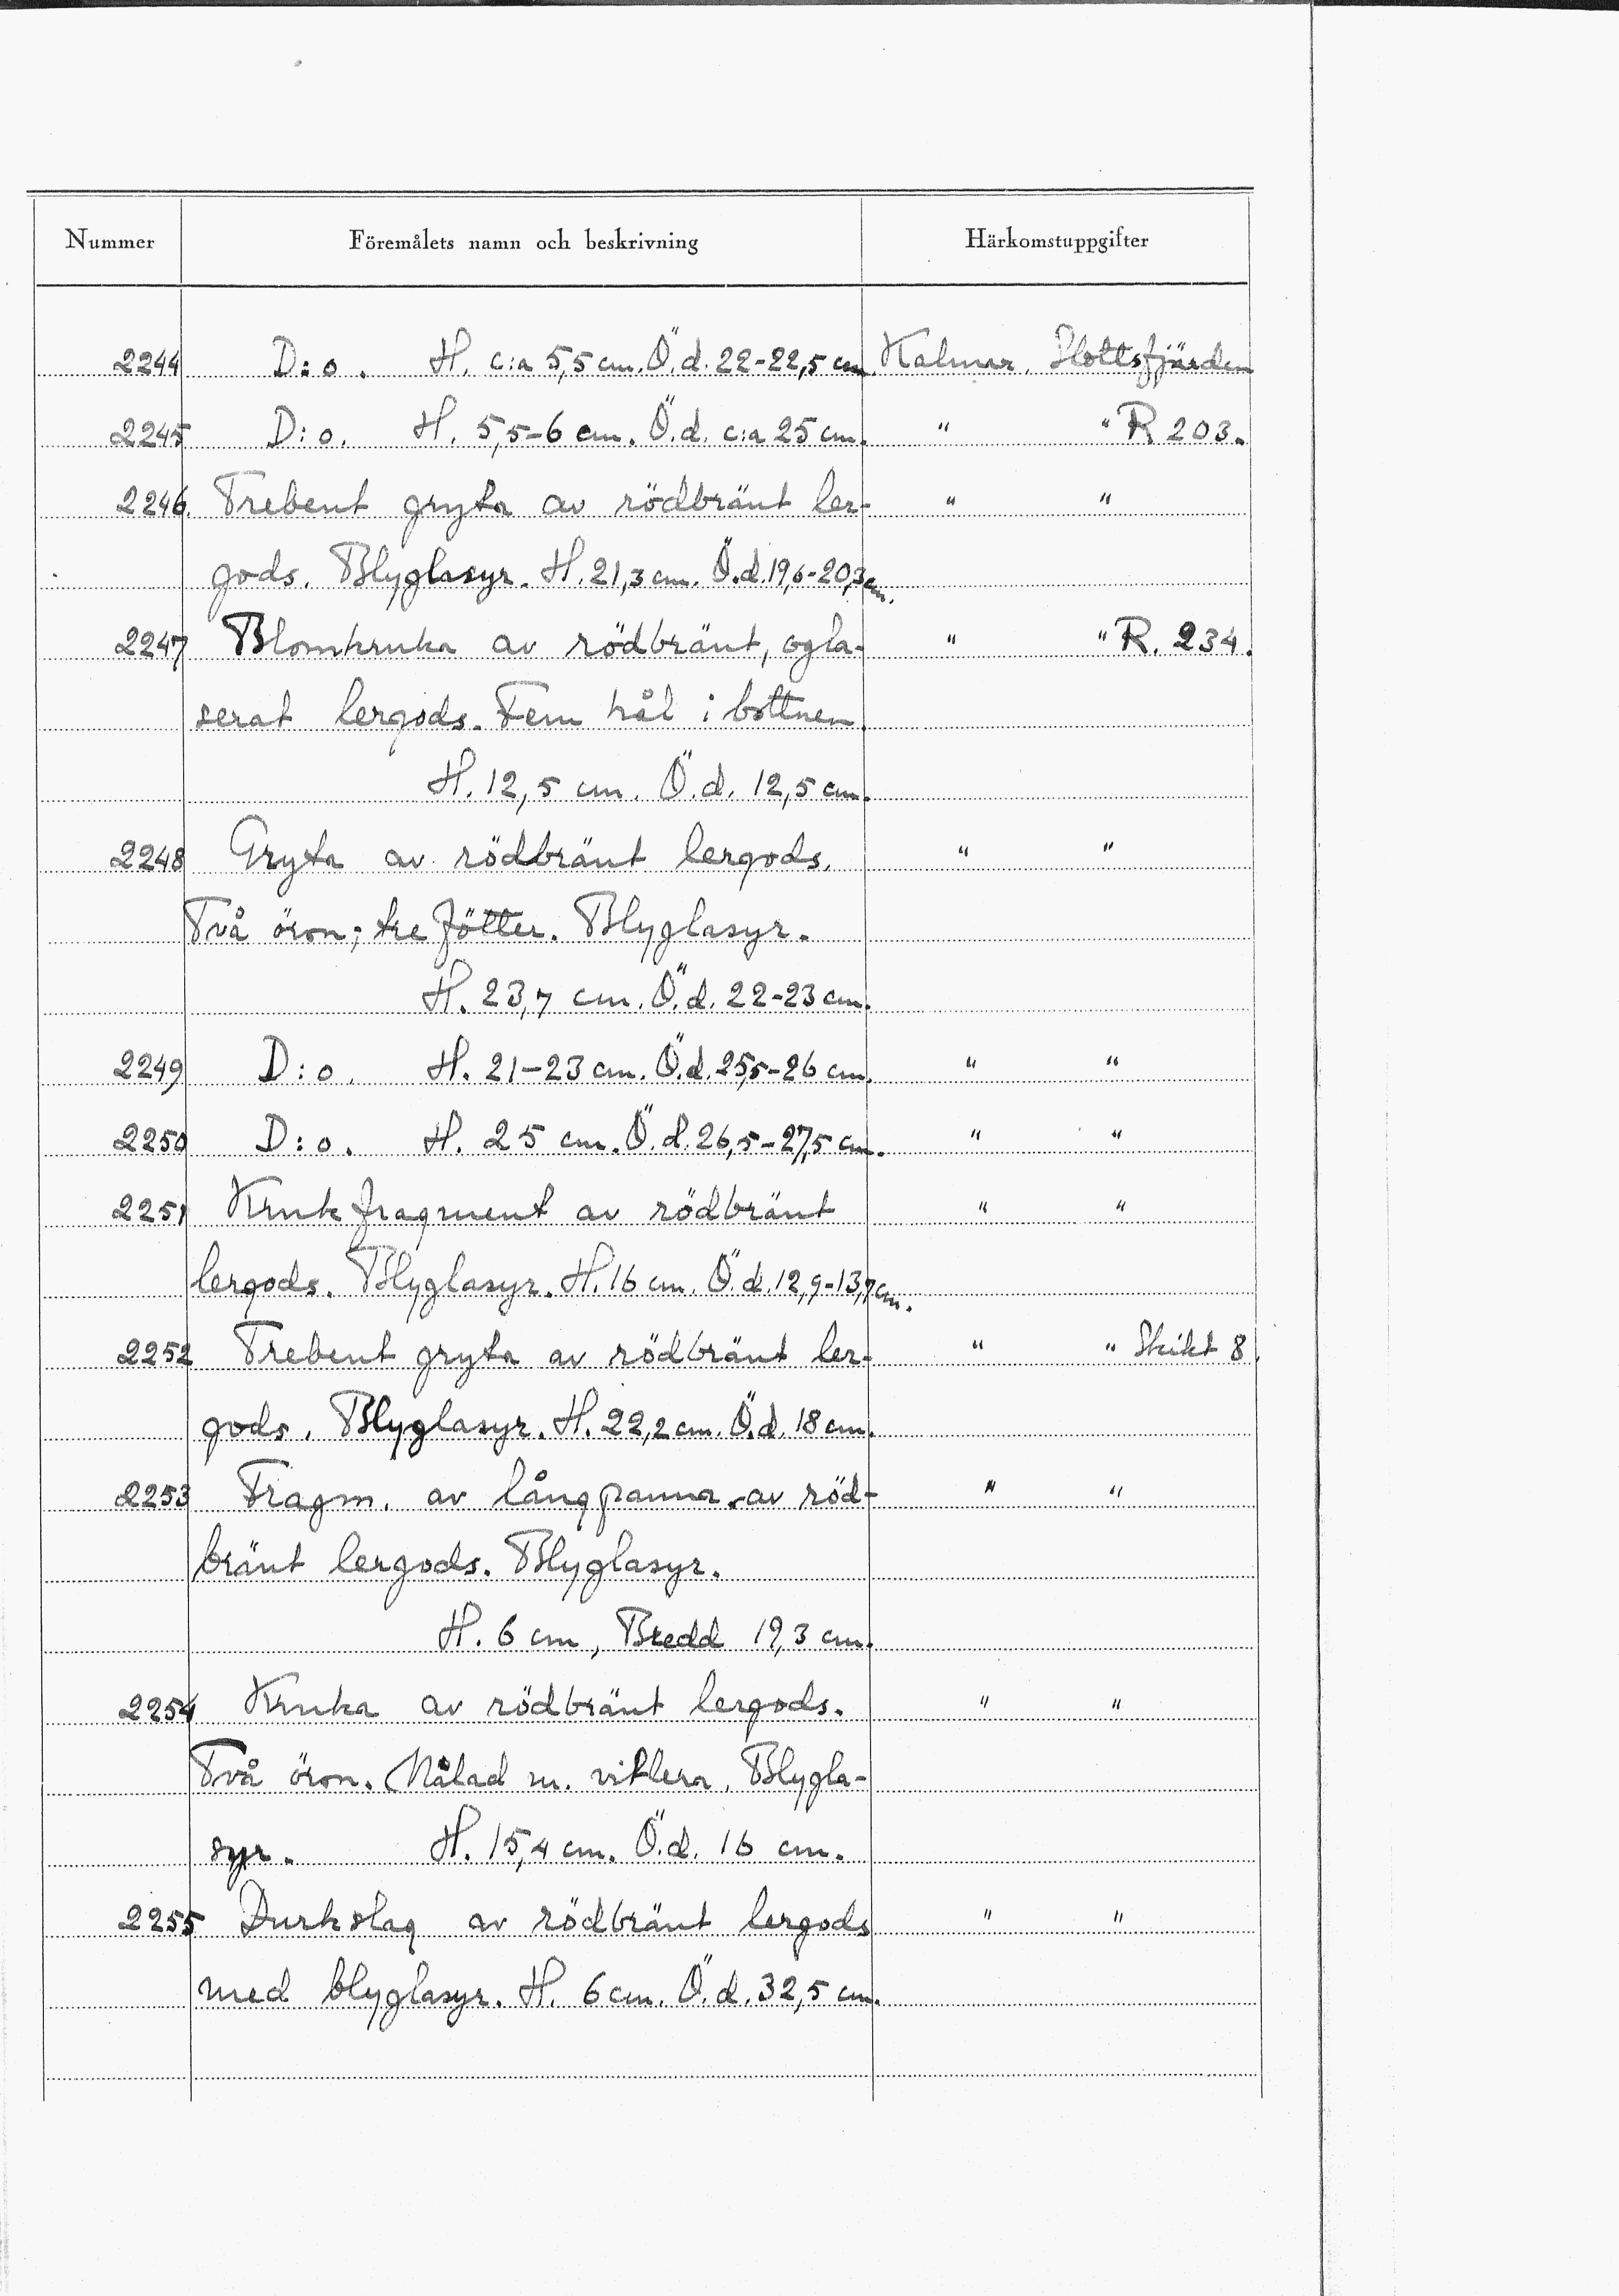 Nummer Föremålets namn och beskrivning Härkomstuppgifter
2244 D:o. H. c:a 5,5 cm. Ö.d. 22-22,5 cm. Kalmar. Slottsfjärden
2245 D:o. H. 5,5-6 cm. Ö.d. c:a 25 cm. " " R 203.
2246. Trebent gryta av rödbränt ler- " "
gods. Blyglasyr. H. 21,3 cm. Ö.d. 19,6-20,3 cm.
2247 Blomkruka av rödbränt, ogla- " " R. 234.
serat lergods. Fem hål i bottnen.
H. 12,5 cm. Ö.d. 12,5 cm.
2248 Gryta av rödbränt lergods. " "
Två öron; tre fötter. Blyglasyr.
H. 23,7 cm. Ö.d. 22-23 cm.
2249 D:o. H. 21-23 cm. Ö.d. 25,5-26 cm. " "
2250 D:o. H. 25 cm. Ö.d. 26,5-27,5 cm. " "
2251 Krukfragment av rödbränt " "
lergods. Blyglasyr. H. 16 cm. Ö.d. 12,9-13,7 cm.
2252 Trebent gryta av rödbränt ler- " " Skikt 8.
gods. Blyglasyr. H. 22,2 cm. Ö.d. 18 cm.
2253 Fragm. av långpanna av röd- " "
bränt lergods. Blyglasyr.
H. 6 cm, Bredd 19,3 cm.
2254 Kruka av rödbränt lergods. " "
Två öron. Målad m. vitlera. Blygla-
syr. H. 15,4 cm. Ö.d. 16 cm.
2255 Durkslag av rödbränt lergods " "
med blyglasyr. H. 6 cm. Ö.d. 32,5 cm.